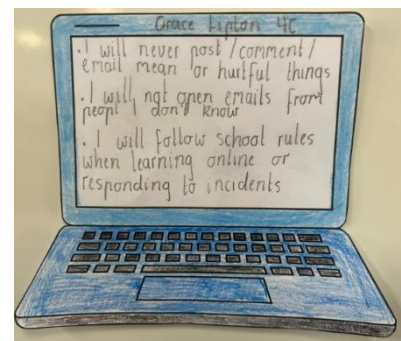 Grace Lipton 4C
. I will never post/comment/
email mean or hurtful things
. I will not open emails from
peopl I don't know
. I will follow school rules
when learning online or
responding to incidents